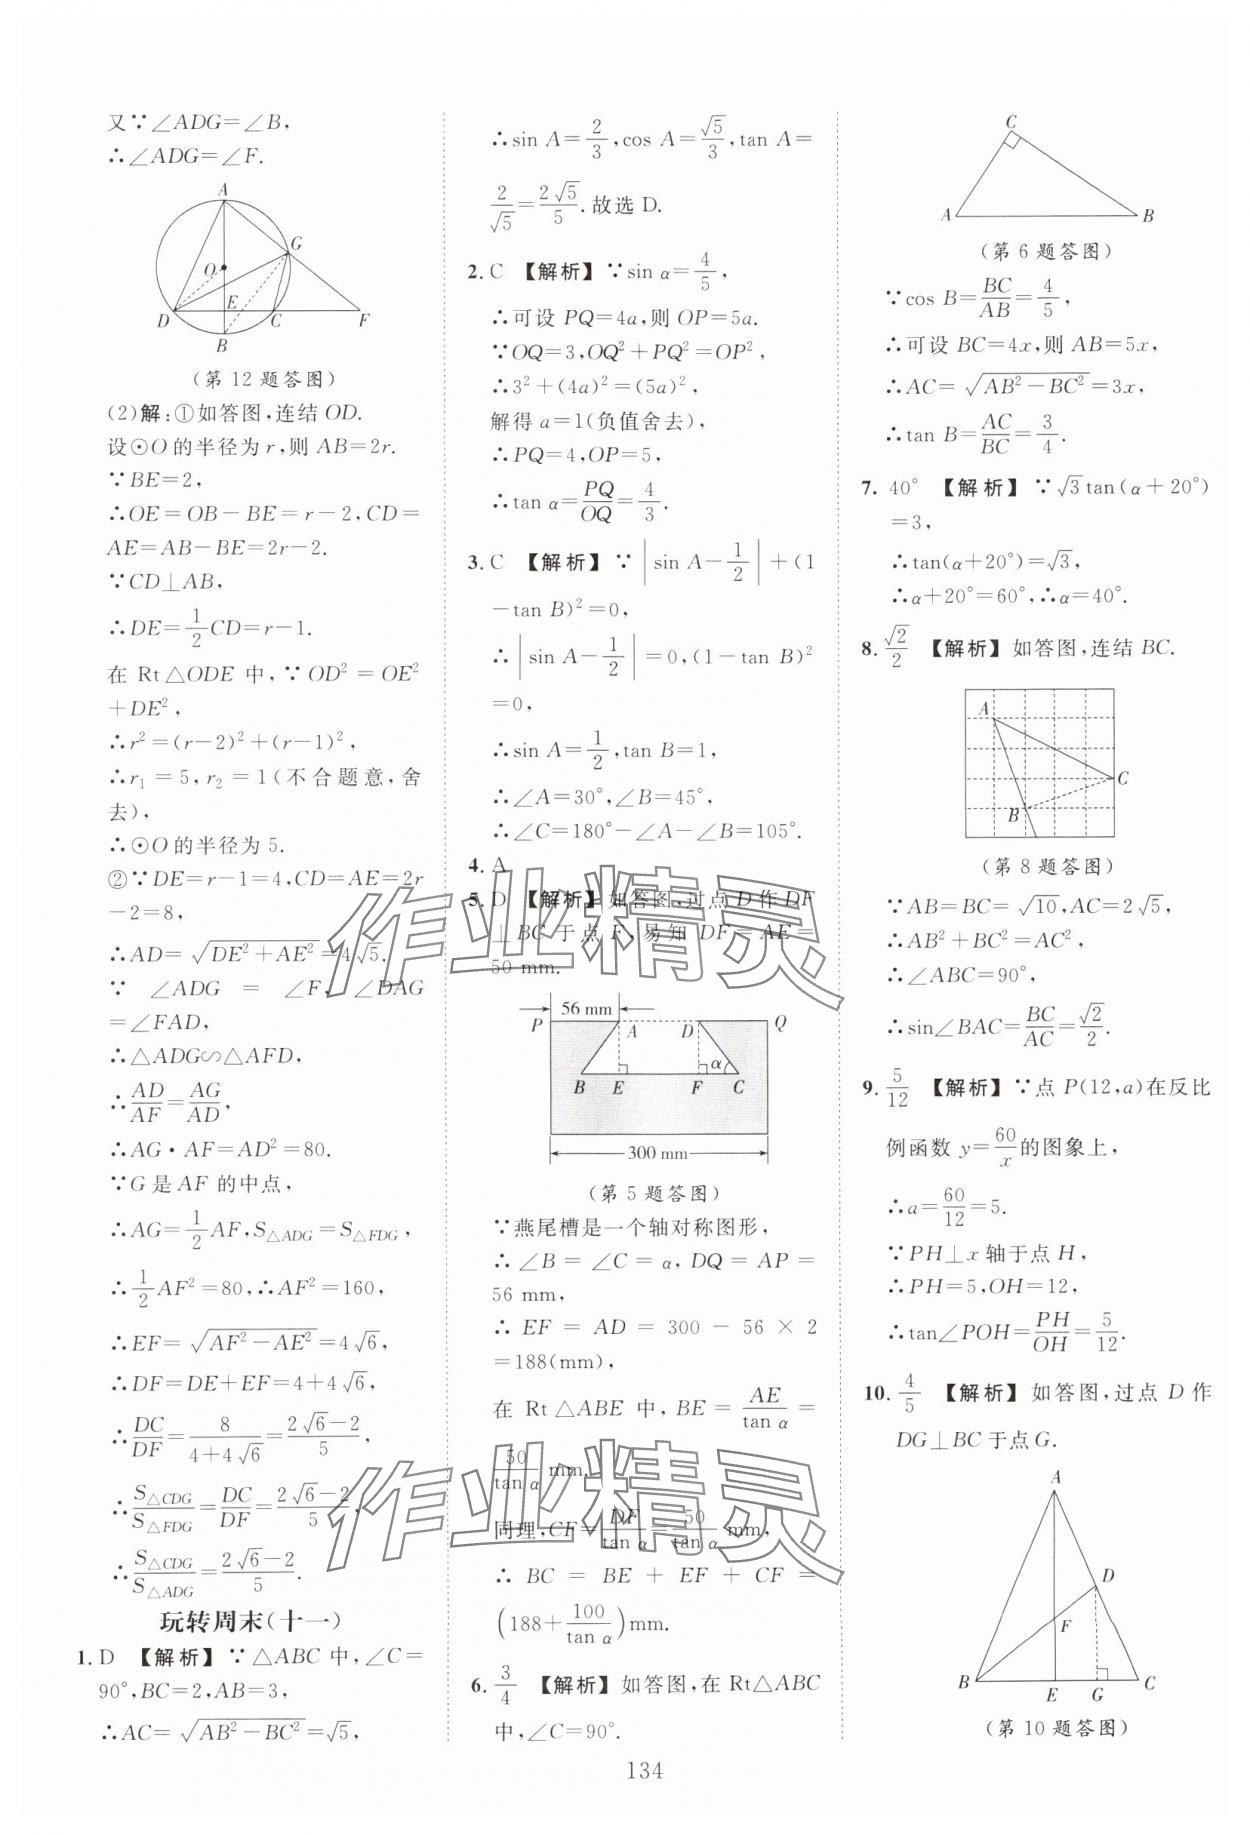 又∵∠ADG=∠B,
∴∠ADG=∠F.
A
G
O
E
D
C
F
B
(第12题答图)
(2)解:①如答图,连结OD.
设⊙O的半径为r,则AB=2r.
∵BE=2,
∴OE=OB-BE=r-2,CD=
AE=AB-BE=2r-2.
∵CD⊥AB,
∴DE=1/2CD=r-1.
在Rt△ODE中,∵OD²=OE²
+DE²,
∴r²=(r-2)²+(r-1)²,
∴r₁=5,r₂=1(不合题意,舍
去),
∴⊙O的半径为5.
②∵DE=r-1=4,CD=AE=2r
-2=8,
∴AD=√(DE²+AE²)=4√5.
∵∠ADG=∠F,∠DAG
=∠FAD,
∴△ADG∽△AFD,
∴AD/AF=AG/AD,
∴AG·AF=AD²=80.
∵G是AF的中点,
∴AG=1/2AF,S△ADG=S△FDG,
∴1/2AF²=80,∴AF²=160,
∴EF=√(AF²-AE²)=4√6,
∴DF=DE+EF=4+4√6,
∴DC/DF=8/(4+4√6)=(2√6-2)/5,
∴S△CDG/S△FDG=DC/DF=(2√6-2)/5,
∴S△CDG/S△ADG=(2√6-2)/5.
玩转周末(十一)
1.D 【解析】∵△ABC中,∠C=
90°,BC=2,AB=3,
∴AC=√(AB²-BC²)=√5,
∴sin A=2/3,cos A=√5/3,tan A=
2/√5=2√5/5.故选D.
2.C 【解析】∵sin α=4/5,
∴可设PQ=4a,则OP=5a.
∵OQ=3,OQ²+PQ²=OP²,
∴3²+(4a)²=(5a)²,
解得a=1(负值舍去),
∴PQ=4,OP=5,
∴tan α=PQ/OQ=4/3.
3.C 【解析】∵|sin A-1/2|+(1
-tan B)²=0,
∴|sin A-1/2|=0,(1-tan B)²
=0,
∴sin A=1/2,tan B=1,
∴∠A=30°,∠B=45°,
∴∠C=180°-∠A-∠B=105°.
4.A
5.D 【解析】如答图,过点D作DF
⊥BC于点F,易知DF=AE=
50 mm.
56 mm
P A D Q
α
B E F C
300 mm
(第5题答图)
∵燕尾槽是一个轴对称图形,
∴∠B=∠C=α,DQ=AP=
56 mm,
∴EF=AD=300-56×2
=188(mm),
在Rt△ABE中,BE=AE/tan α=
50/tan α mm.
同理,CF=DF/tan α=50/tan α mm,
∴BC=BE+EF+CF=
(188+100/tan α)mm.
6.3/4 【解析】如答图,在Rt△ABC
中,∠C=90°.
C
A B
(第6题答图)
∵cos B=BC/AB=4/5,
∴可设BC=4x,则AB=5x,
∴AC=√(AB²-BC²)=3x,
∴tan B=AC/BC=3/4.
7.40° 【解析】∵√3tan(α+20°)
=3,
∴tan(α+20°)=√3,
∴α+20°=60°,∴α=40°.
8.√2/2 【解析】如答图,连结BC.
A
C
B
(第8题答图)
∵AB=BC=√10,AC=2√5,
∴AB²+BC²=AC²,
∴∠ABC=90°,
∴sin∠BAC=BC/AC=√2/2.
9.5/12 【解析】∵点P(12,a)在反比
例函数y=60/x的图象上,
∴a=60/12=5.
∵PH⊥x轴于点H,
∴PH=5,OH=12,
∴tan∠POH=PH/OH=5/12.
10.4/5 【解析】如答图,过点D作
DG⊥BC于点G.
A
D
F
B E G C
(第10题答图)
134
作业精灵
作业精灵